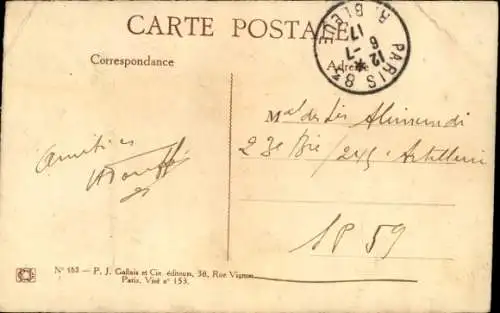 CARTE POSTALE
PARIS 83
R. BLEUE
12
6 -7
17
Correspondance
Adresse
Amitiés
Mal des Lis
23e Bie / 245 Artillerie
SP 59
N° 153 – P. J. Gallais et Cie, éditeurs, 38, Rue Vignon
Paris, Visé n° 153.